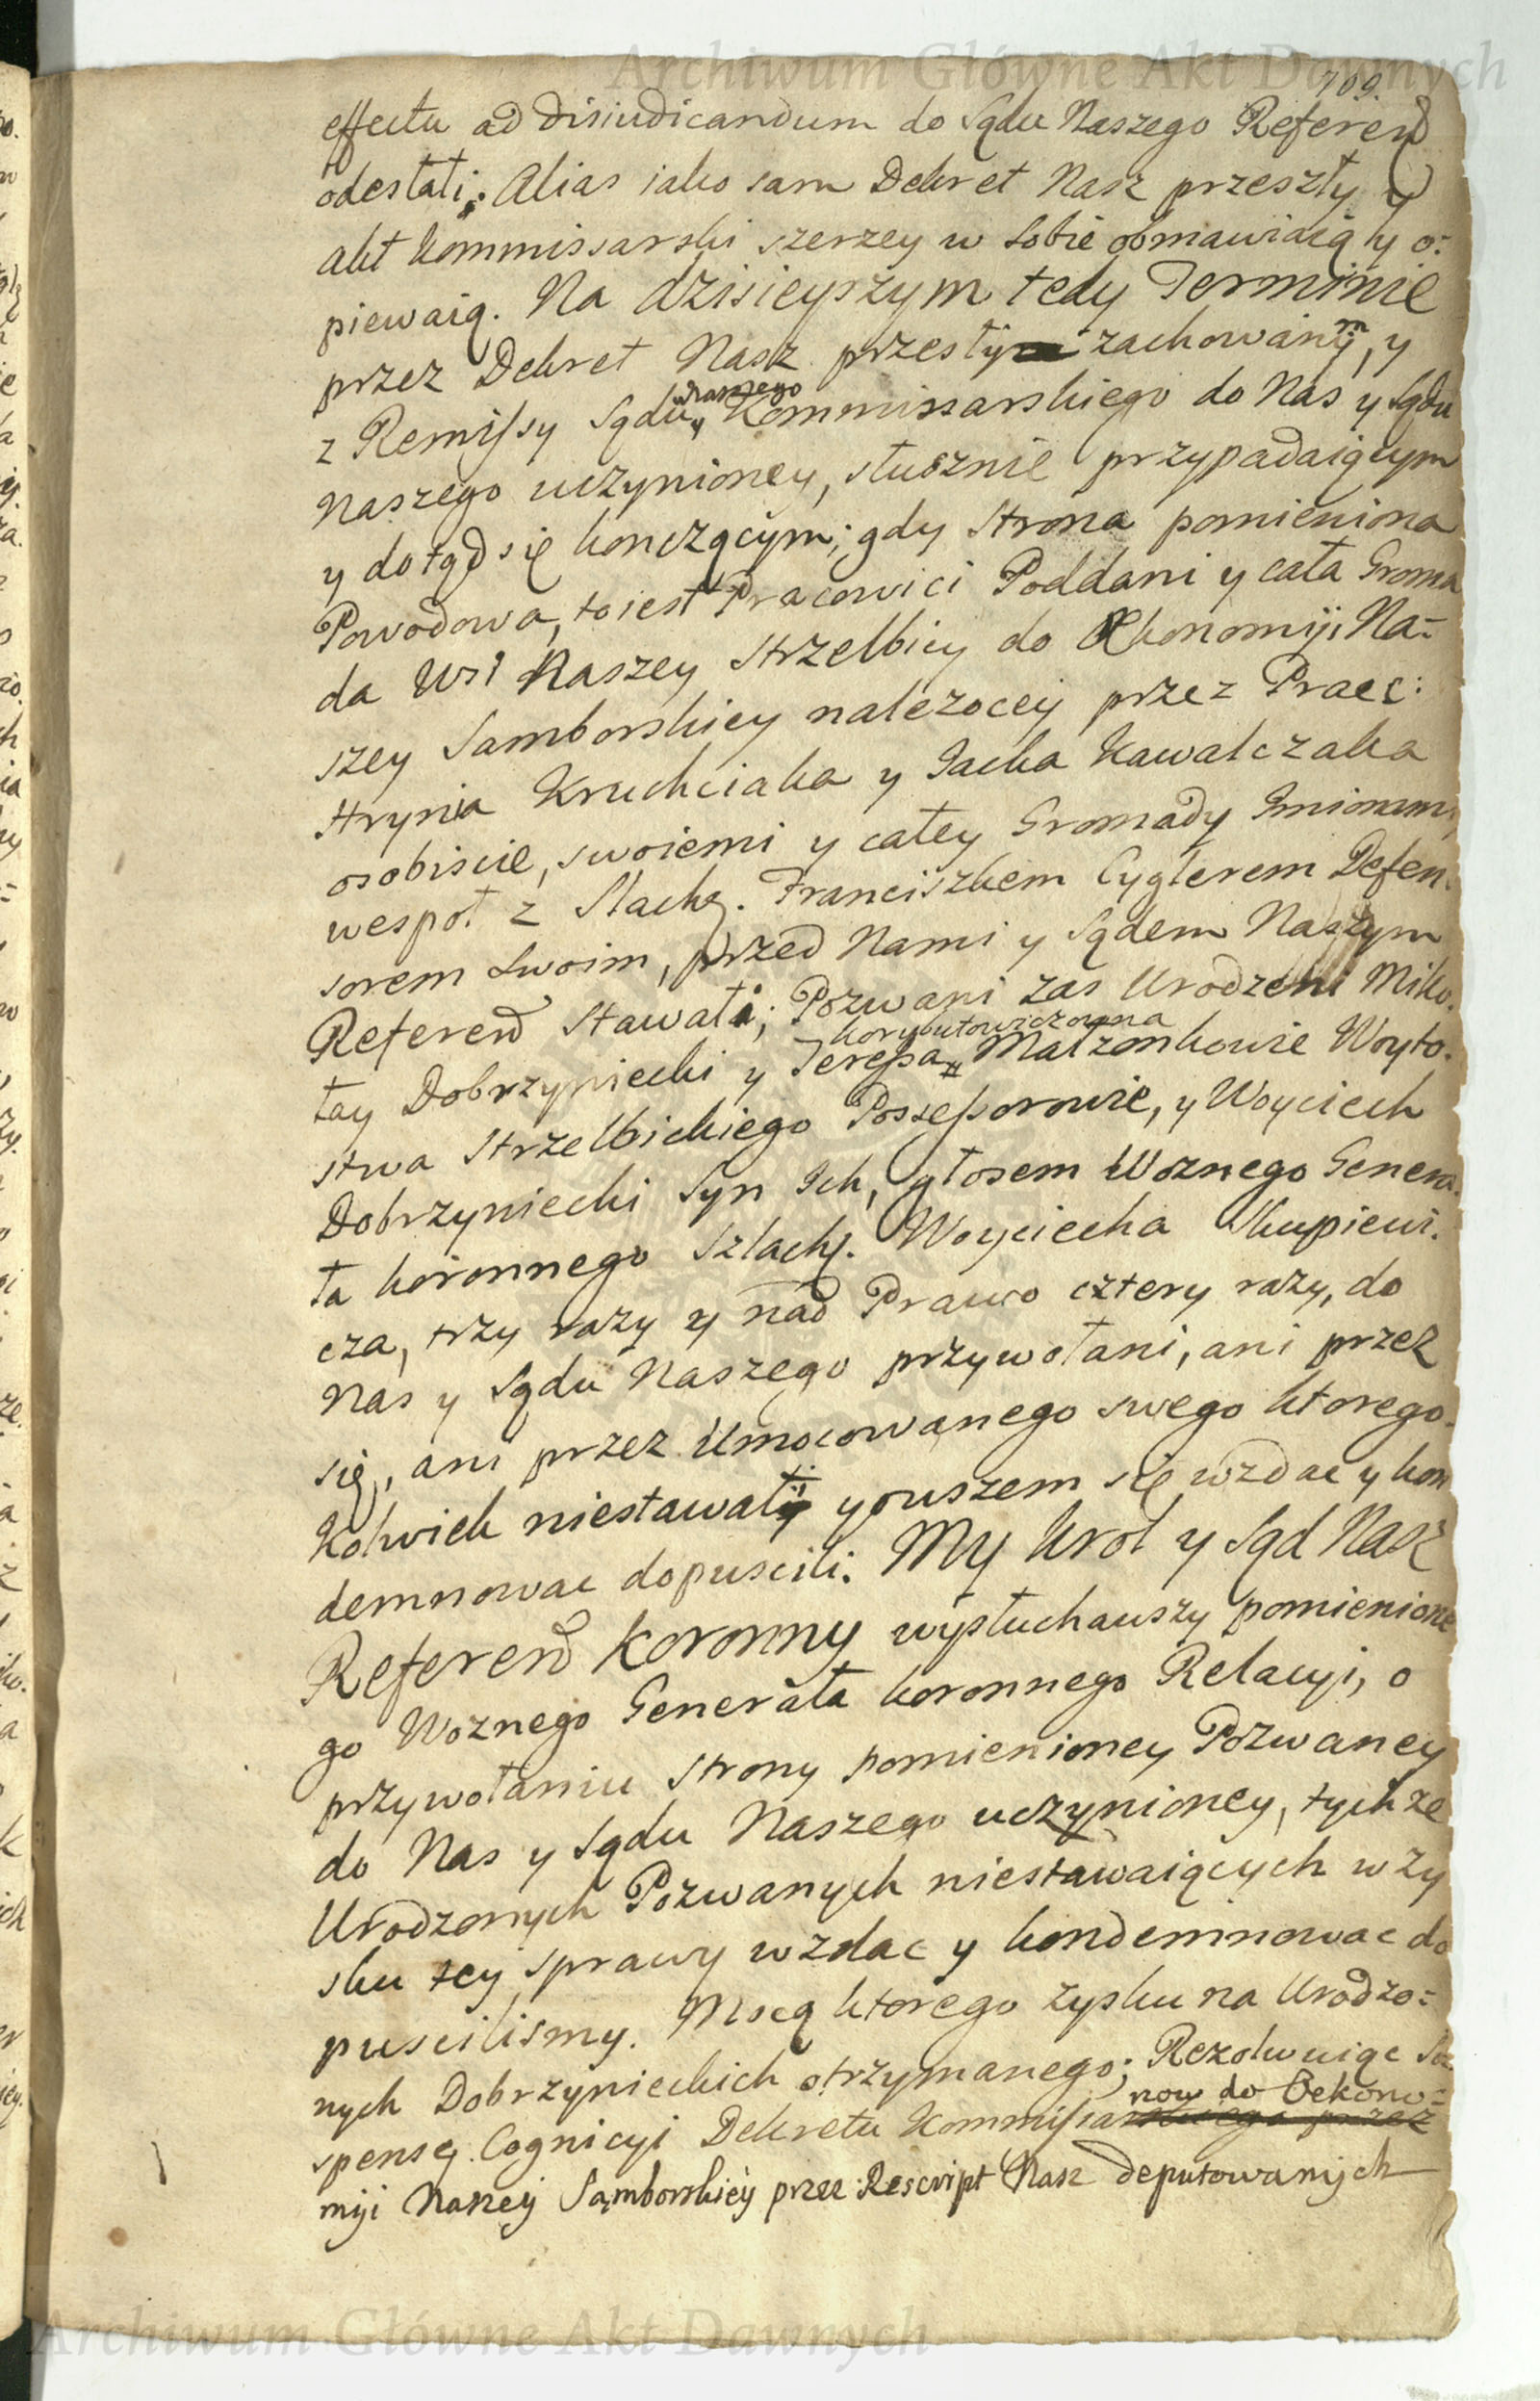 Archiwum Główne Akt Dawnych
709.
effectu ad disiudicandum do Sądu Naszego Referend
odesłali; Alias iako sam Dekret Nasz przeszły y
akt Kommissarski szerzey w sobie obmawiaią y o=
piewaią. Na dzisieyszym tedy Terminie
przez Dekret Nasz przesły zachowanym, y
z Remissy Sądu naszego Kommissarskiego do Nas y Sądu
Naszego uczynioney, słusznie przypadaiącym
y dotąd się konczącym; gdy Strona pomieniona
Powodowa, to iest Pracowici Poddani y cała Groma
da Wsi Naszey Strzelbicy do Ekonomiji Na=
szey Samborskiey nalezocey przez Prac:
Hrynia Kruchciaka y Jacka Kawalczaka
osobiscie, swoiemi y całey Gromady Imionem,
wespoł z Slache. Franciszkiem Cyglerem Defen=
sorem Swoim, przed Nami y Sądem Naszym
Referend stawali; Pozwani zas Urodzeni Miko=
łay Dobrzyniecki y Teressa Korybutowiczowna Małzonkowie Woyto=
stwa Strzelbickiego Possessorowie, y Woyciech
Dobrzyniecki Syn Ich, głosem Woznego Genera=
ła koronnego Szlache. Woyciecha Skupiewi=
cza, trzy razy y nad Prawo cztery razy, do
Nas y Sądu Naszego przywołani, ani przez
się, ani przez Umocowanego swego ktorego=
Kolwiek niestawali y owszem się wzdac y kon
demnowac dopuscili. My Krol y Sąd Nasz
Referend Koronny wysłuchawszy pomienione
go Woznego Generała koronnego Relacyi, o
przywołaniu Strony pomienioney Pozwaney
do Nas y Sądu Naszego uczynioney, tychze
Urodzonych Pozwanych niestawaiących w zy
sku tey sprawy wzdac y kondemnowac do
puscilismy. Mocą ktorego zysku na Urodzo=
nych Dobrzynieckich otrzymanego; Rezolwuiąc Su=
spensę Cognicyi Dekretu Kommissarskiego przez now do Oekono=
miji Naszey Samborskiey przez Rescript Nasz deputowanych
Archiwum Główne Akt Dawnych